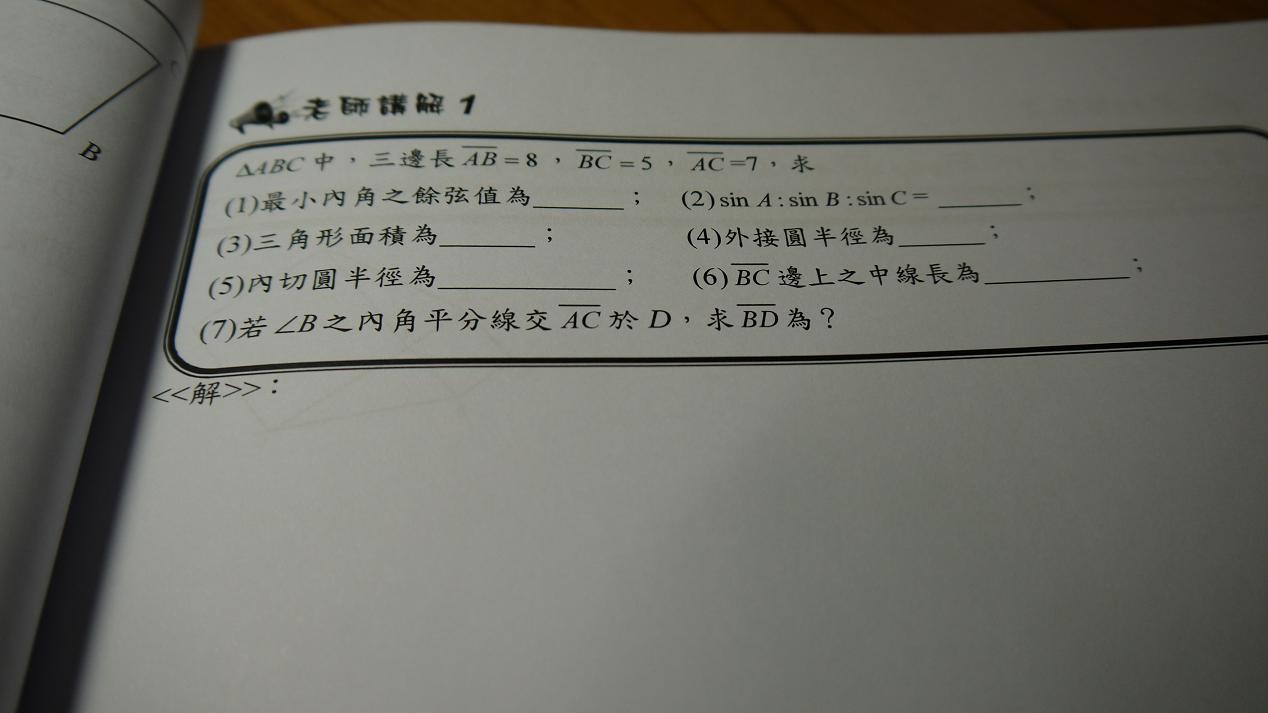 C
B
老師講解 1
ΔABC 中，三邊長 \overline{AB} = 8，\overline{BC} = 5，\overline{AC} =7，求
(1)最小內角之餘弦值為______； (2) sin A : sin B : sin C = ______；
(3)三角形面積為______； (4)外接圓半徑為______；
(5)內切圓半徑為______； (6) \overline{BC} 邊上之中線長為______；
(7)若 ∠B 之內角平分線交 \overline{AC} 於 D，求 \overline{BD} 為？
<<解>>：